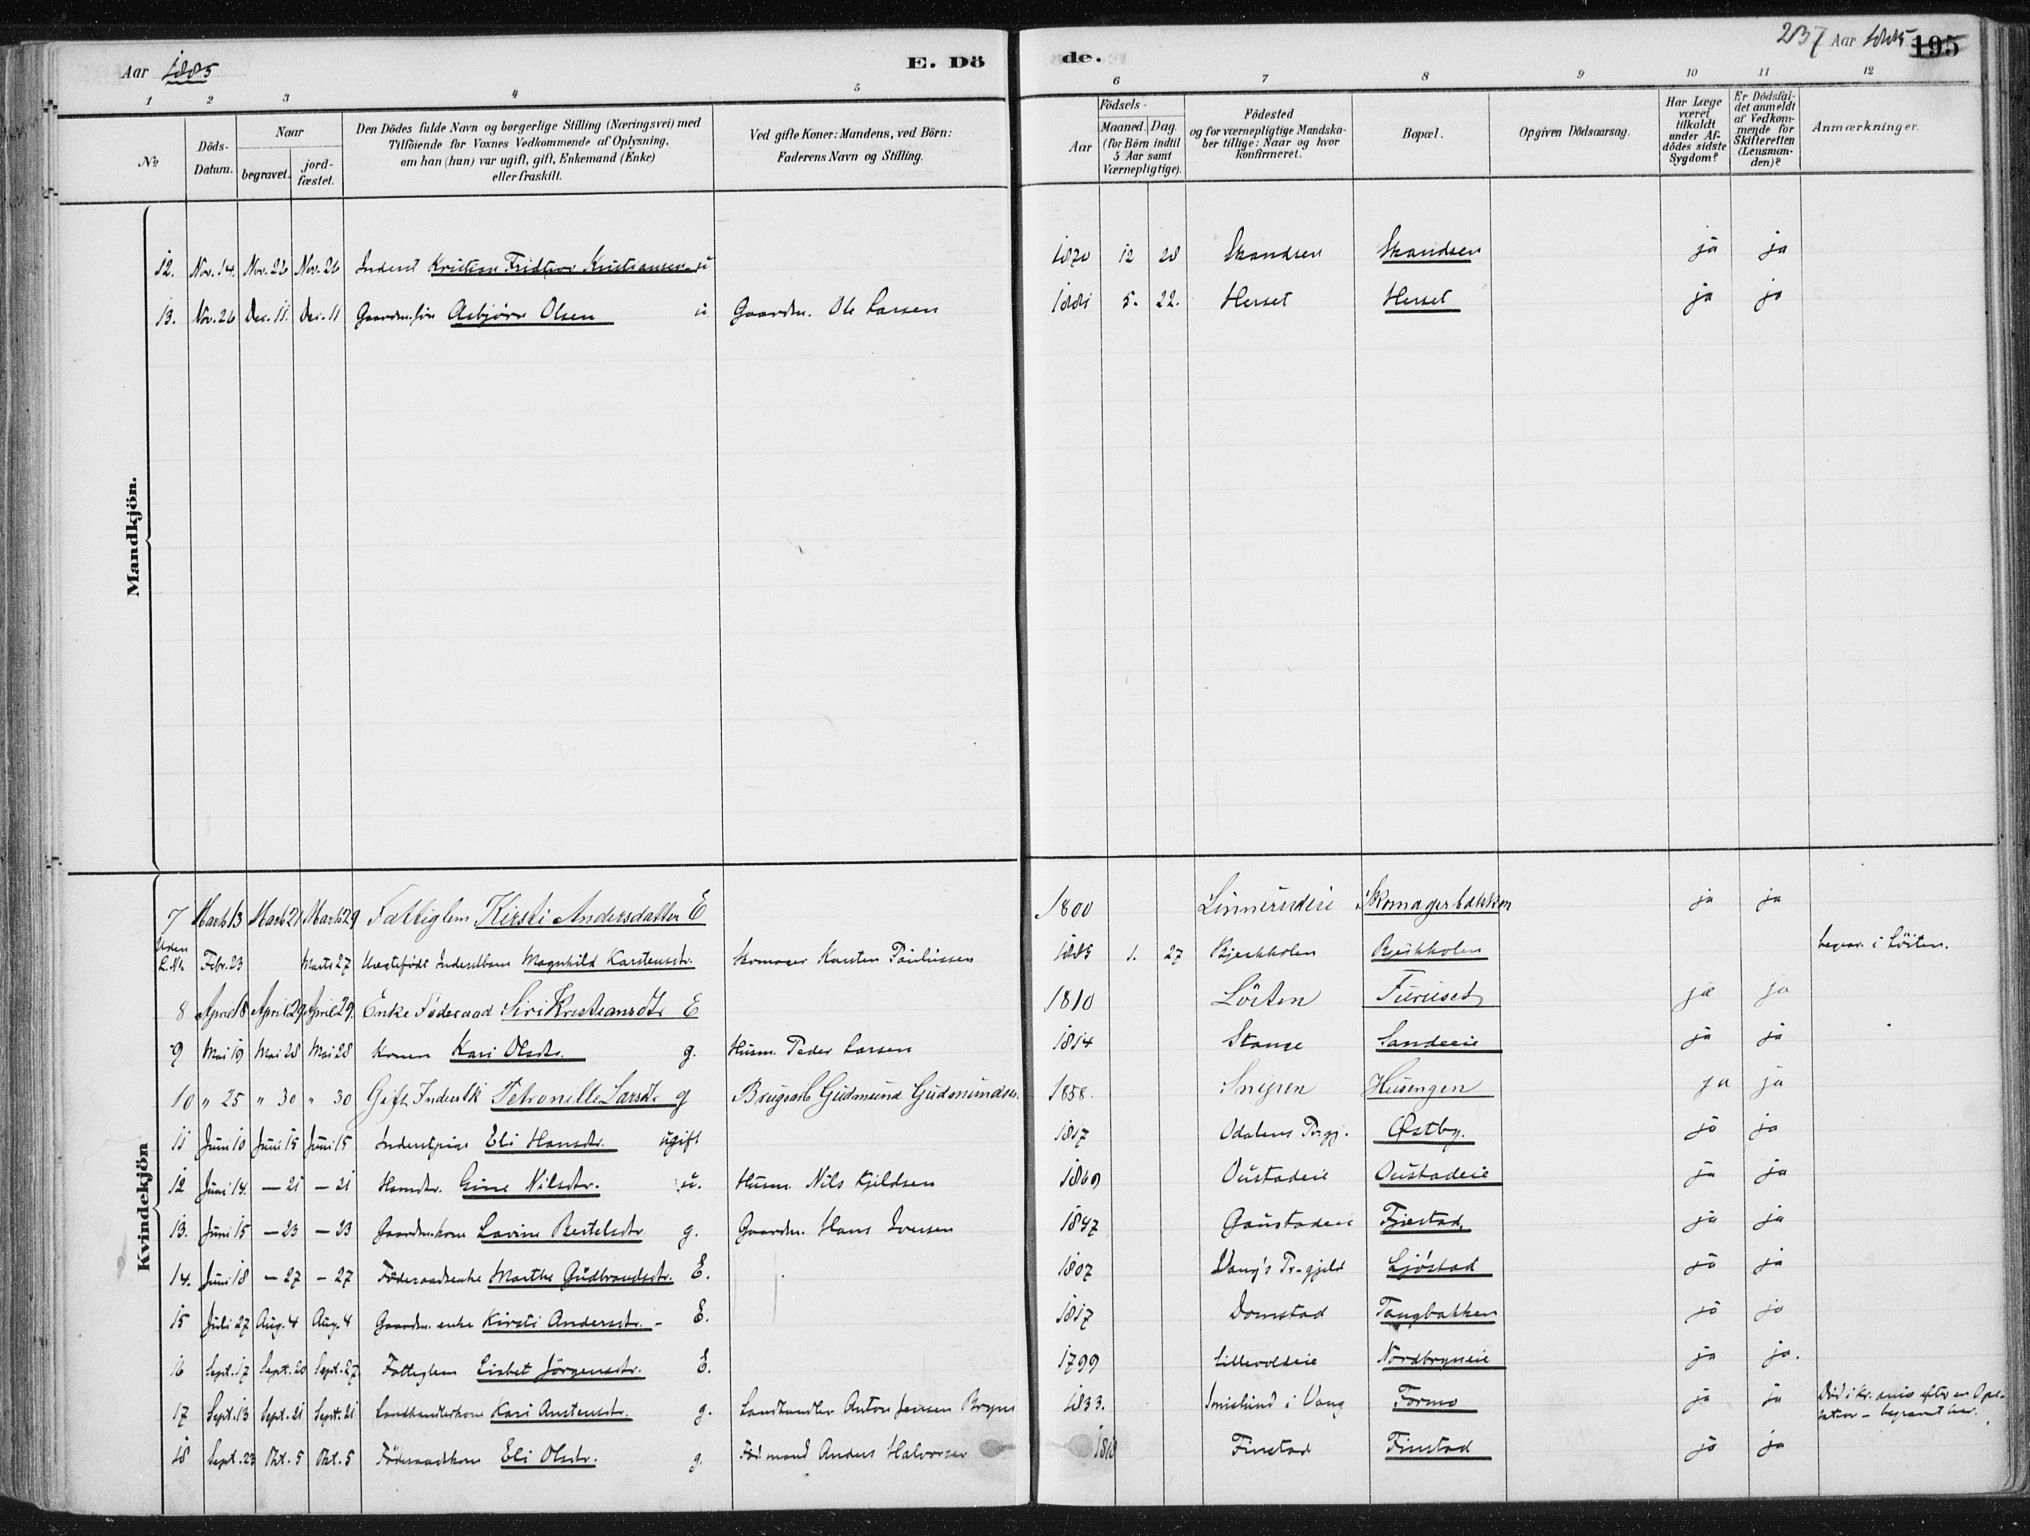 Aar 1885
E. Dö
de.
237 Aar 1885 195
1 2 3 4 5 6 7 8 9 10 11 12
No
Döds-Datum.
Naar
begravet.
jord-fæstet.
Den Dödes fulde Navn og borgerlige Stilling (Næringsvei) med
Tilföiende for Voxnes Vedkommende af Oplysning,
om han (hun) var ugift, gift, Enkemand (Enke)
eller fraskilt.
Ved gifte Koner: Mandens, ved Börn:
Faderens Navn og Stilling.
Födsels-
Aar
Maaned. Dag.
(for Börn indtil
5 Aar samt
Værnepligtige).
Födested
og for værnepligtige Mandska-
ber tillige: Naar og hvor
konfirmeret.
Bopæl.
Opgiven Dödsaarsag.
Har Læge
været
tilkaldt
under Af-
dödes sidste
Sygdom?
Er Dödsfal-
det anmeldt
af Vedkom-
mende for
Skifteretten
(Lensman-
den)?
Anmærkninger.
Mandkjön.
12. Nov. 14. Nov. 26 Nov. 26 Inderst Kristian Fridtjov Kristiansen u 1870 12 28 Skandsen Skandsen ja ja
13. Nov. 26 Dec. 11. Dec. 11 Gaardm. sön Asbjörn Olsen u Gaardm. Ole Larsen 1881 5. 22. Herset Herset ja ja
Kvindekjön
7 Marts 13 Marts 21 Marts 29 Fattiglem Kirsti Andersdatter E 1800 Linnerudeie Skomagerbakken ja ja
Uden L.No. Febr. 23 Marts 27 Uægtefödt Inderstbarn Magnhild Karstensdtr. Skomager Karsten Paulussen 1885 1. 27 Bjerkholen Bjerkholen begrav. i Löiten.
8 April 18 April 29 April 29. Enke Föderaad Siri Kristiansdtr E 1810 Löiten Furuset ja ja
9 Mai 19 Mai 28 Mai 28 Konen Kari Olsdtr. g. Husm. Peder Larsen 1814 Stange Sandeeie ja ja
10 " 25 " 30 " 30 Gift Inderstk Petronille Larsdtr g Brugsarb Gudmund Gudmundsen. 1858. Snipen Husengen ja ja
11 Juni 10 Juni 15 Juni 15 Inderstpige Eli Hansdtr. ugift 1817 Odalens Prgj. Østby. ja ja
12 Juni 14. — 21 — 21 Hsmdtr. Gine Nilsdtr. u. Husm. Nils Kjeldsen 1869 Oustadeie Oustadeie ja ja
13. Juni 15 — 23 — 23 Gaardm.kone Lovine Bertelsdtr g. Gaardm. Hans Iversen 1847 Gaustadeie Fjestad. ja ja
14. Juni 18 — 27 — 27 Föderaadsenke Marthe Gudbrandsdtr. E. 1807 Vang's Pr-gjeld Ljöstad ja ja
15 Juli 27 Aug. 4 Aug. 4 Gaardm. enke Kirsti Andersdtr. - E. 1817 Domstad Tangbakken ja ja
16 Sept. 17 Sept. 20 Sept. 27. Fattiglem Lisbet Jörgensdtr. E. 1799 Lillevoldeie Nordbryneie ja ja.
17 Sept. 13 Sept. 21 Sept. 21 Landhandlerkone Kari Austensdtr. g. Landhandler Anton Jensen Bryni 1833. Imislund i Vang Formo ja ja Död i Kr.ania efter en Ope-
ration — begravet her.
18 Sept. 23 Okt. 5 Okt. 5 Föderaadskone Eli Olsdtr. g. Föd mand Anders Halvorsen Finstad Finstad ja ja